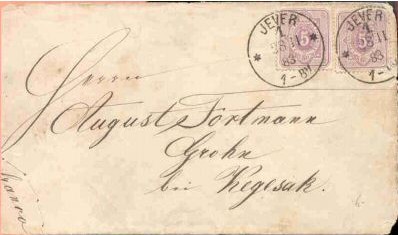 JEVER
1
11
83
1-8N
5
JEVER
1
11
83
1-8N
5
Herrn
August Fortmann
Grohn
bei Vegesak.